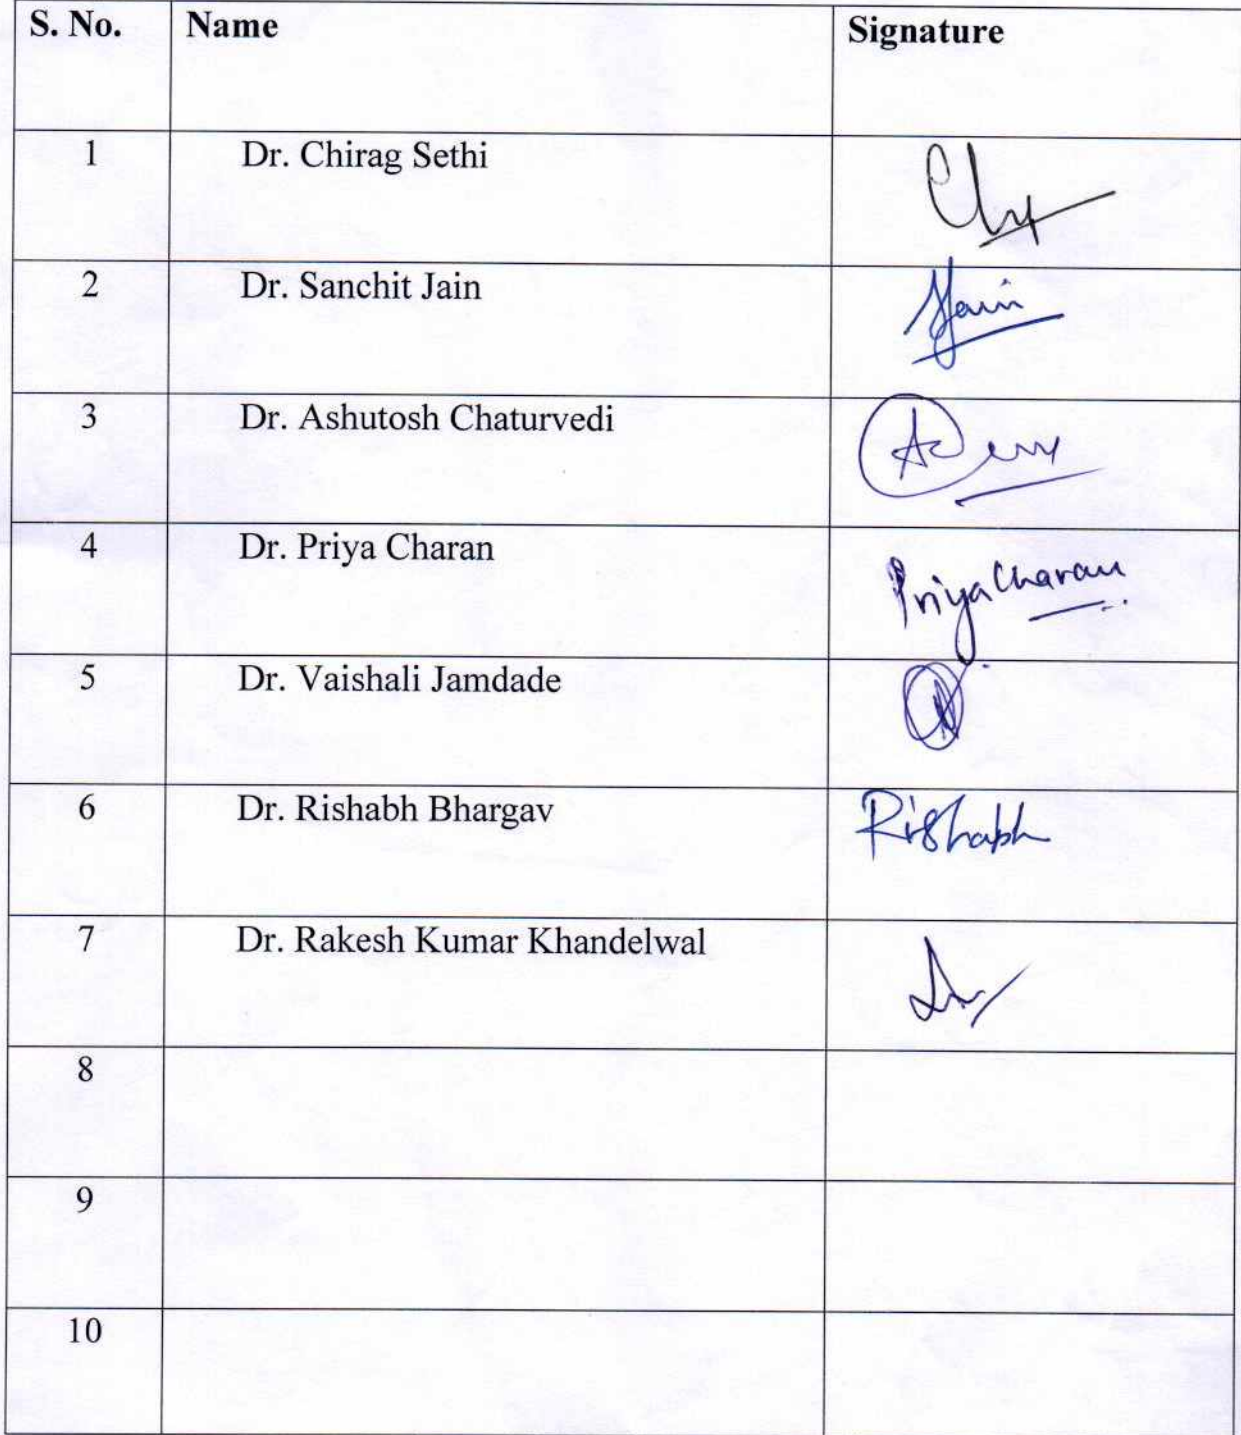 S. No. Name Signature
1 Dr. Chirag Sethi
2 Dr. Sanchit Jain Jain
3 Dr. Ashutosh Chaturvedi
4 Dr. Priya Charan Priya Charan
5 Dr. Vaishali Jamdade
6 Dr. Rishabh Bhargav Rishabh
7 Dr. Rakesh Kumar Khandelwal
8
9
10